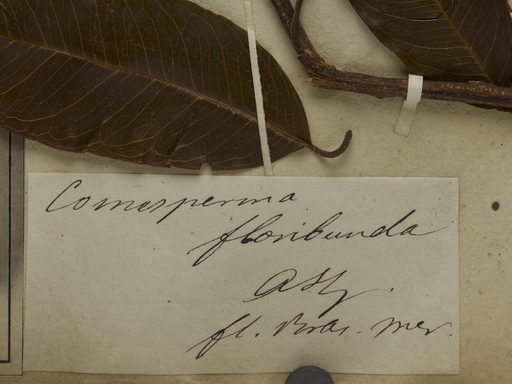 Comesperma
floribunda
A St Hy.
fl. Bras. mer.